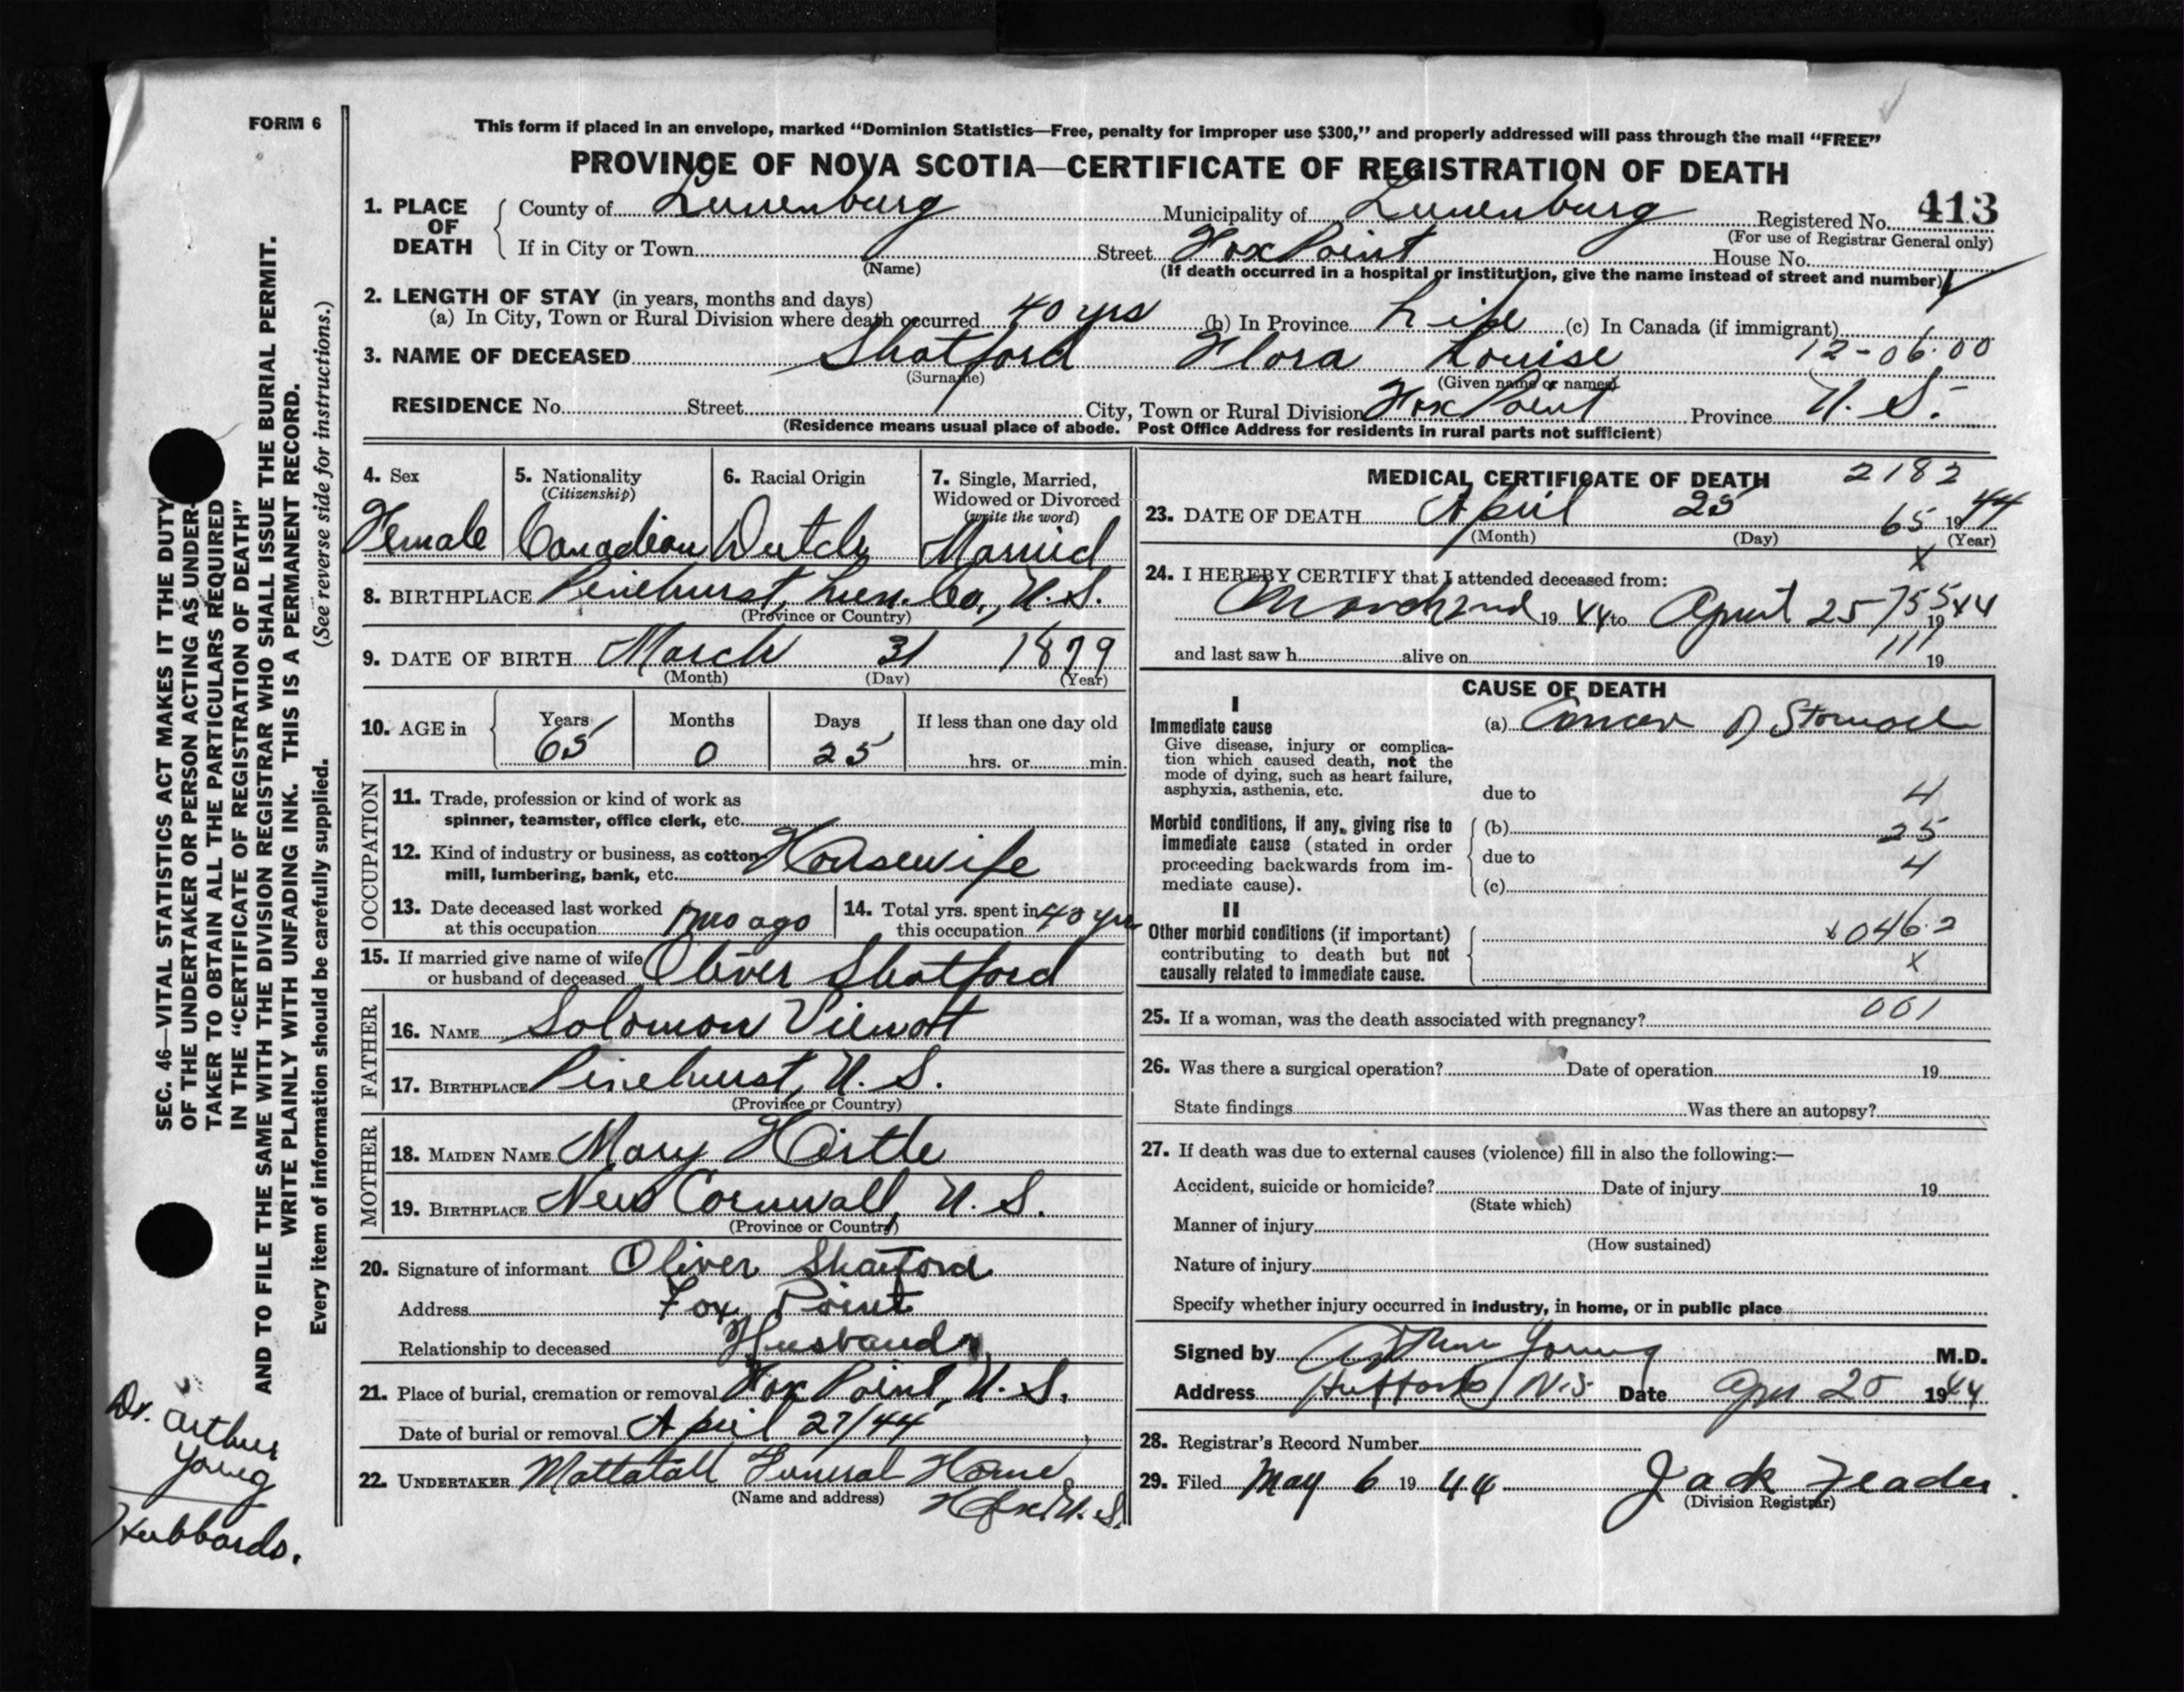 FORM 6
This form if placed in an envelope, marked “Dominion Statistics—Free, penalty for improper use $300,” and properly addressed will pass through the mail “FREE”
PROVINCE OF NOVA SCOTIA—CERTIFICATE OF REGISTRATION OF DEATH
1. PLACE OF DEATH County of Lunenburg Municipality of Lunenburg Registered No. 413
(For use of Registrar General only)
If in City or Town Street Fox Point House No.
(Name) (If death occurred in a hospital or institution, give the name instead of street and number)
2. LENGTH OF STAY (in years, months and days)
(a) In City, Town or Rural Division where death occurred 40 yrs (b) In Province Life (c) In Canada (if immigrant)
3. NAME OF DECEASED Shatford Flora Louise 12-06.00
(Surname) (Given name or names)
RESIDENCE No. Street City, Town or Rural Division Fox Point Province N.S.
(Residence means usual place of abode. Post Office Address for residents in rural parts not sufficient)
4. Sex Female
5. Nationality (Citizenship) Canadian
6. Racial Origin Dutch
7. Single, Married, Widowed or Divorced (write the word) Married
8. BIRTHPLACE Pinehurst, Lun. Co., N.S.
(Province or Country)
9. DATE OF BIRTH March 31 1879
(Month) (Day) (Year)
10. AGE in Years 65 Months 0 Days 25 If less than one day old
hrs. or min.
OCCUPATION
11. Trade, profession or kind of work as
spinner, teamster, office clerk, etc.
12. Kind of industry or business, as cotton Housewife
mill, lumbering, bank, etc.
13. Date deceased last worked at this occupation 1 mo ago
14. Total yrs. spent in this occupation 40 yrs
15. If married give name of wife or husband of deceased Oliver Shatford
FATHER
16. NAME Solomon
17. BIRTHPLACE Pinehurst, N.S.
(Province or Country)
MOTHER
18. MAIDEN NAME Mary Hirtle
19. BIRTHPLACE New Cornwall, N.S.
(Province or Country)
20. Signature of informant Oliver Shatford
Address Fox Point
Relationship to deceased Husband
21. Place of burial, cremation or removal Fox Point, N.S.
Date of burial or removal April 27/44
22. UNDERTAKER Mattatall Funeral Home
(Name and address) Hfx. N.S.
MEDICAL CERTIFICATE OF DEATH 2182
23. DATE OF DEATH April 25 65 1944
(Month) (Day) (Year)
x
24. I HEREBY CERTIFY that I attended deceased from:
March 2nd 19 44 to April 25 755 19 44
111
and last saw h alive on 19
CAUSE OF DEATH
I
Immediate cause (a) Cancer of Stomach
Give disease, injury or complica-
tion which caused death, not the
mode of dying, such as heart failure,
asphyxia, asthenia, etc.
due to 4
Morbid conditions, if any, giving rise to (b) 25
immediate cause (stated in order due to 4
proceeding backwards from im-
mediate cause). (c)
II
Other morbid conditions (if important) 046.2
contributing to death but not
causally related to immediate cause. x
25. If a woman, was the death associated with pregnancy? 001
26. Was there a surgical operation? Date of operation 19
State findings Was there an autopsy?
27. If death was due to external causes (violence) fill in also the following:—
Accident, suicide or homicide? Date of injury 19
(State which)
Manner of injury
(How sustained)
Nature of injury
Specify whether injury occurred in industry, in home, or in public place
Signed by Arthur Young M.D.
Address N.S. Date Apr 25 1944
28. Registrar's Record Number
29. Filed May 6 19 44 Jack
(Division Registrar)
SEC. 46—VITAL STATISTICS ACT MAKES IT THE DUTY
OF THE UNDERTAKER OR PERSON ACTING AS UNDER-
TAKER TO OBTAIN ALL THE PARTICULARS REQUIRED
IN THE “CERTIFICATE OF REGISTRATION OF DEATH”
AND TO FILE THE SAME WITH THE DIVISION REGISTRAR WHO SHALL ISSUE THE BURIAL PERMIT.
WRITE PLAINLY WITH UNFADING INK. THIS IS A PERMANENT RECORD.
Every item of information should be carefully supplied. (See reverse side for instructions.)
Dr. Arthur
Young
Hubbards.